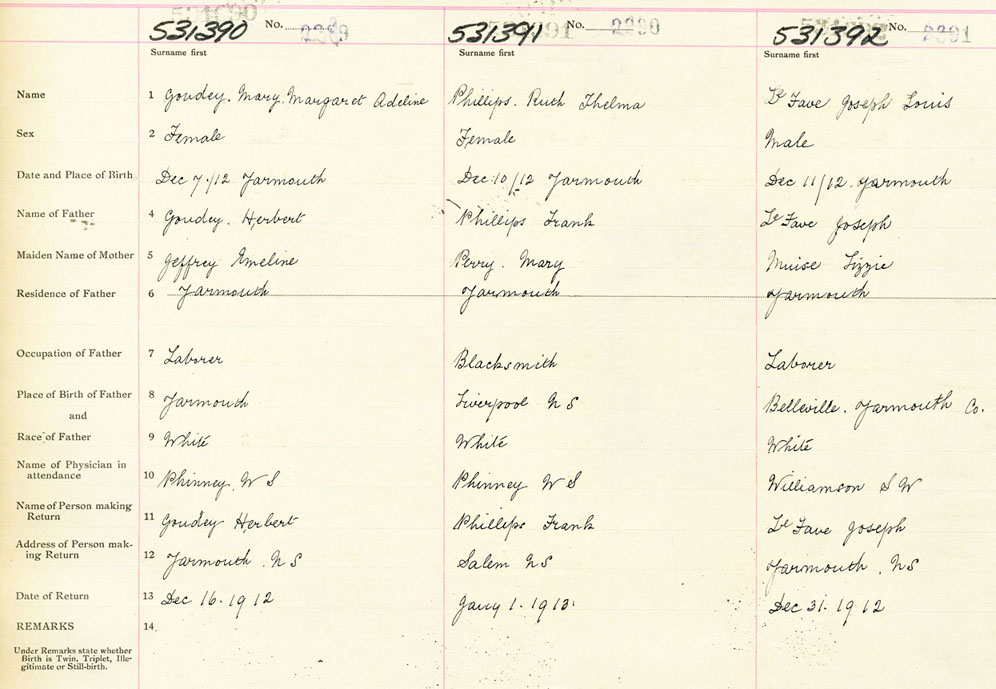 531390 No. 2389 531391 No. 2390 531392 No. 2391
Surname first Surname first Surname first
Name 1 Goudey. Mary. Margaret Adeline Phillips. Ruth Thelma Le Fave Joseph Louis
Sex 2 Female Female Male
Date and Place of Birth 3 Dec 7./12 Yarmouth Dec 10/12 Yarmouth Dec 11/12. Yarmouth
Name of Father 4 Goudey. Herbert Phillips Frank Le Fave Joseph
Maiden Name of Mother 5 Jeffrey Emeline Perry. Mary Muise Lizzie
Residence of Father 6 Yarmouth Yarmouth Yarmouth
Occupation of Father 7 Laborer Blacksmith Laborer
Place of Birth of Father 8 Yarmouth Liverpool N S Belleville. Yarmouth Co.
and
Race of Father 9 White White White
Name of Physician in
attendance 10 Phinney. W S Phinney W S Williamson S W
Name of Person making
Return 11 Goudey Herbert Phillips Frank Le Fave Joseph
Address of Person mak-
ing Return 12 Yarmouth. N S Salem N S Yarmouth. N S
Date of Return 13 Dec 16. 1912 Jany 1. 1913. Dec 31. 1912
REMARKS 14
Under Remarks state whether
Birth is Twin, Triplet, Ille-
gitimate or Still-birth.